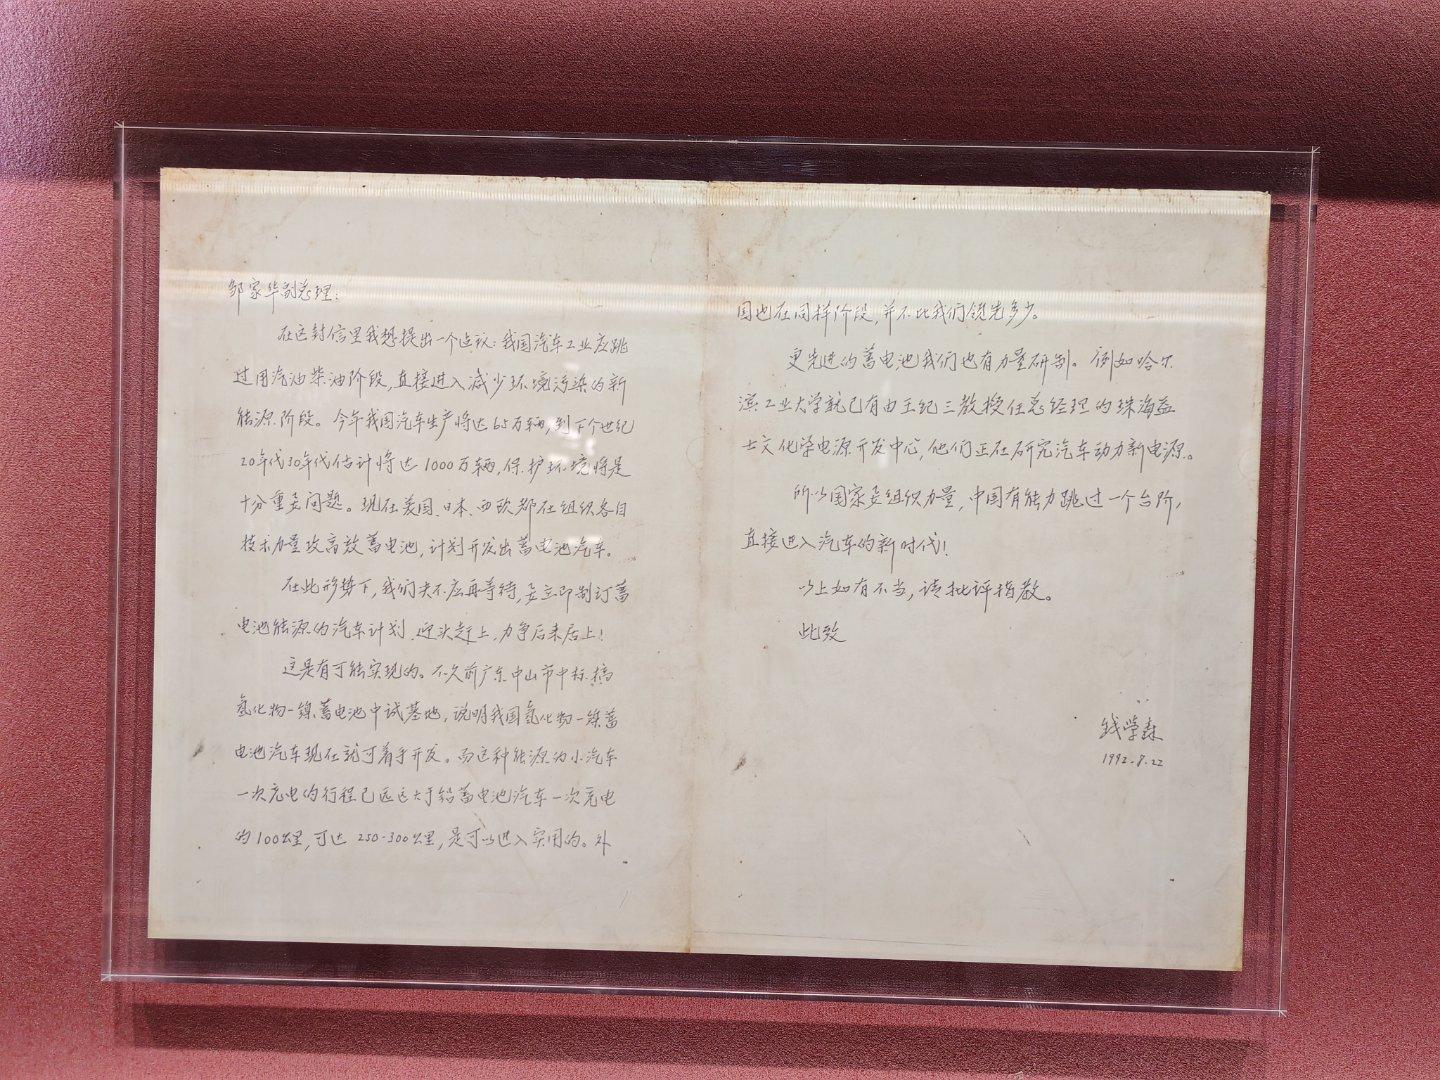 邹家华副总理：
在这封信里我想提出一个建议：我国汽车工业应跳
过用汽油柴油阶段，直接进入减少环境污染的新
能源阶段。今年我国汽车生产将达65万辆，到下个世纪
20年代30年代估计将达1000万辆，保护环境将是
十分重要问题。现在美国、日本、西欧都在组织各自
技术力量攻高效蓄电池，计划开发出蓄电池汽车。
在此形势下，我们决不应再等待，要立即制订蓄
电池能源的汽车计划，迎头赶上，力争后来居上！
这是有可能实现的。不久前广东中山市中标搞
氢化物-镍蓄电池中试基地，说明我国氢化物-镍蓄
电池汽车现在就可着手开发。而这种能源为小汽车
一次充电的行程已远远大于铅蓄电池汽车一次充电
的100公里，可达250-300公里，是可以进入实用的。外
国也在同样阶段，并不比我们领先多少。
更先进的蓄电池我们也有力量研制。例如哈尔
滨工业大学就已有由王纪三教授任总经理的珠海益
士文化学电源开发中心，他们正在研究汽车动力新电源。
所以国家要组织力量，中国有能力跳过一个台阶，
直接进入汽车的新时代！
以上如有不当，请批评指教。
此致
钱学森
1992.8.22